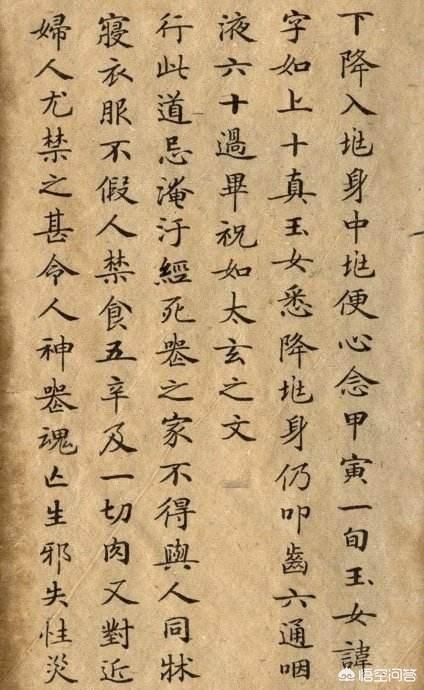 下降入兆身中兆便心念甲寅一旬玉女諱
字如上十真玉女悉降兆身仍叩齒六通咽
液六十過畢祝如太玄之文
行此道忌淹汙經死喪之家不得與人同牀
寢衣服不假人禁食五辛及一切肉又對近
婦人尤禁之甚令人神喪魂亡生邪失性災
悟空问答